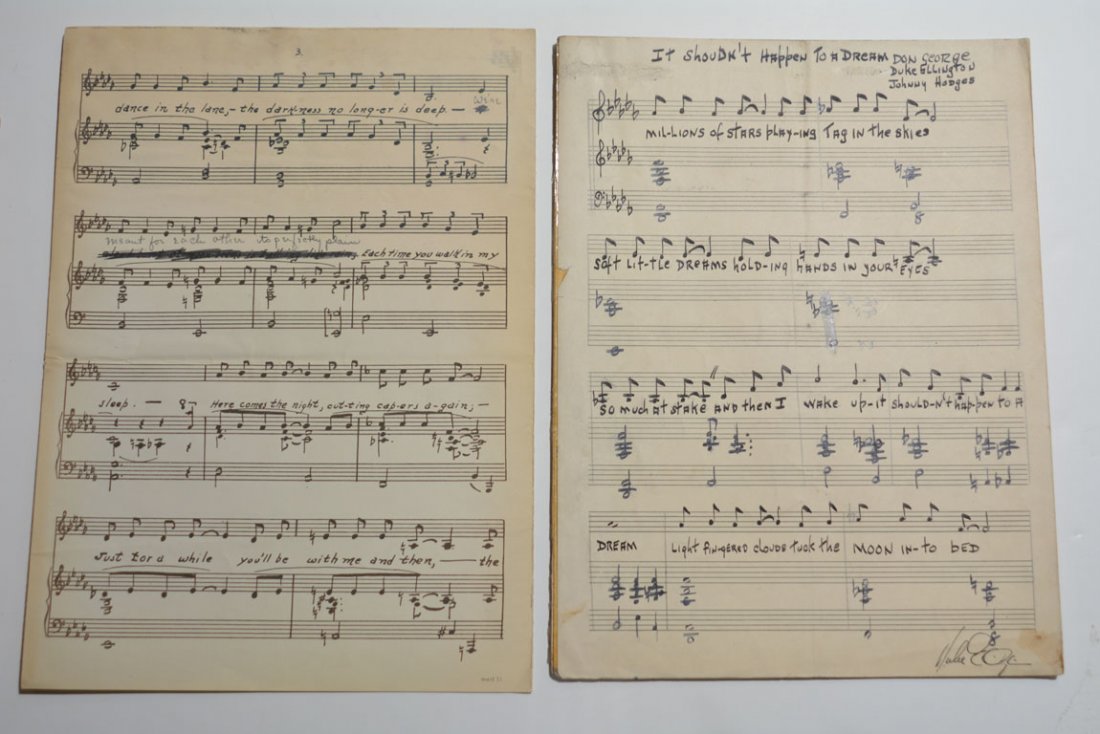 3.
We're
dance in the lane,- the dark-ness no long-er is deep. —
meant for each other its perfectly plain
Each time you walk in my
sleep. —
Here comes the night, cut-ting cap-ers a-gain; —
Just for a while you'll be with me and then, — the
It Shouldn't Happen To A Dream Don George
Duke Ellington
Johnny Hodges
Mil-lions of stars play-ing Tag in the skies
Soft lit-tle dreams hold-ing hands in your eyes
So much at stake and then I wake up-it should-n't hap-pen to a
Dream Light fin-gered clouds tuck the moon in-to bed